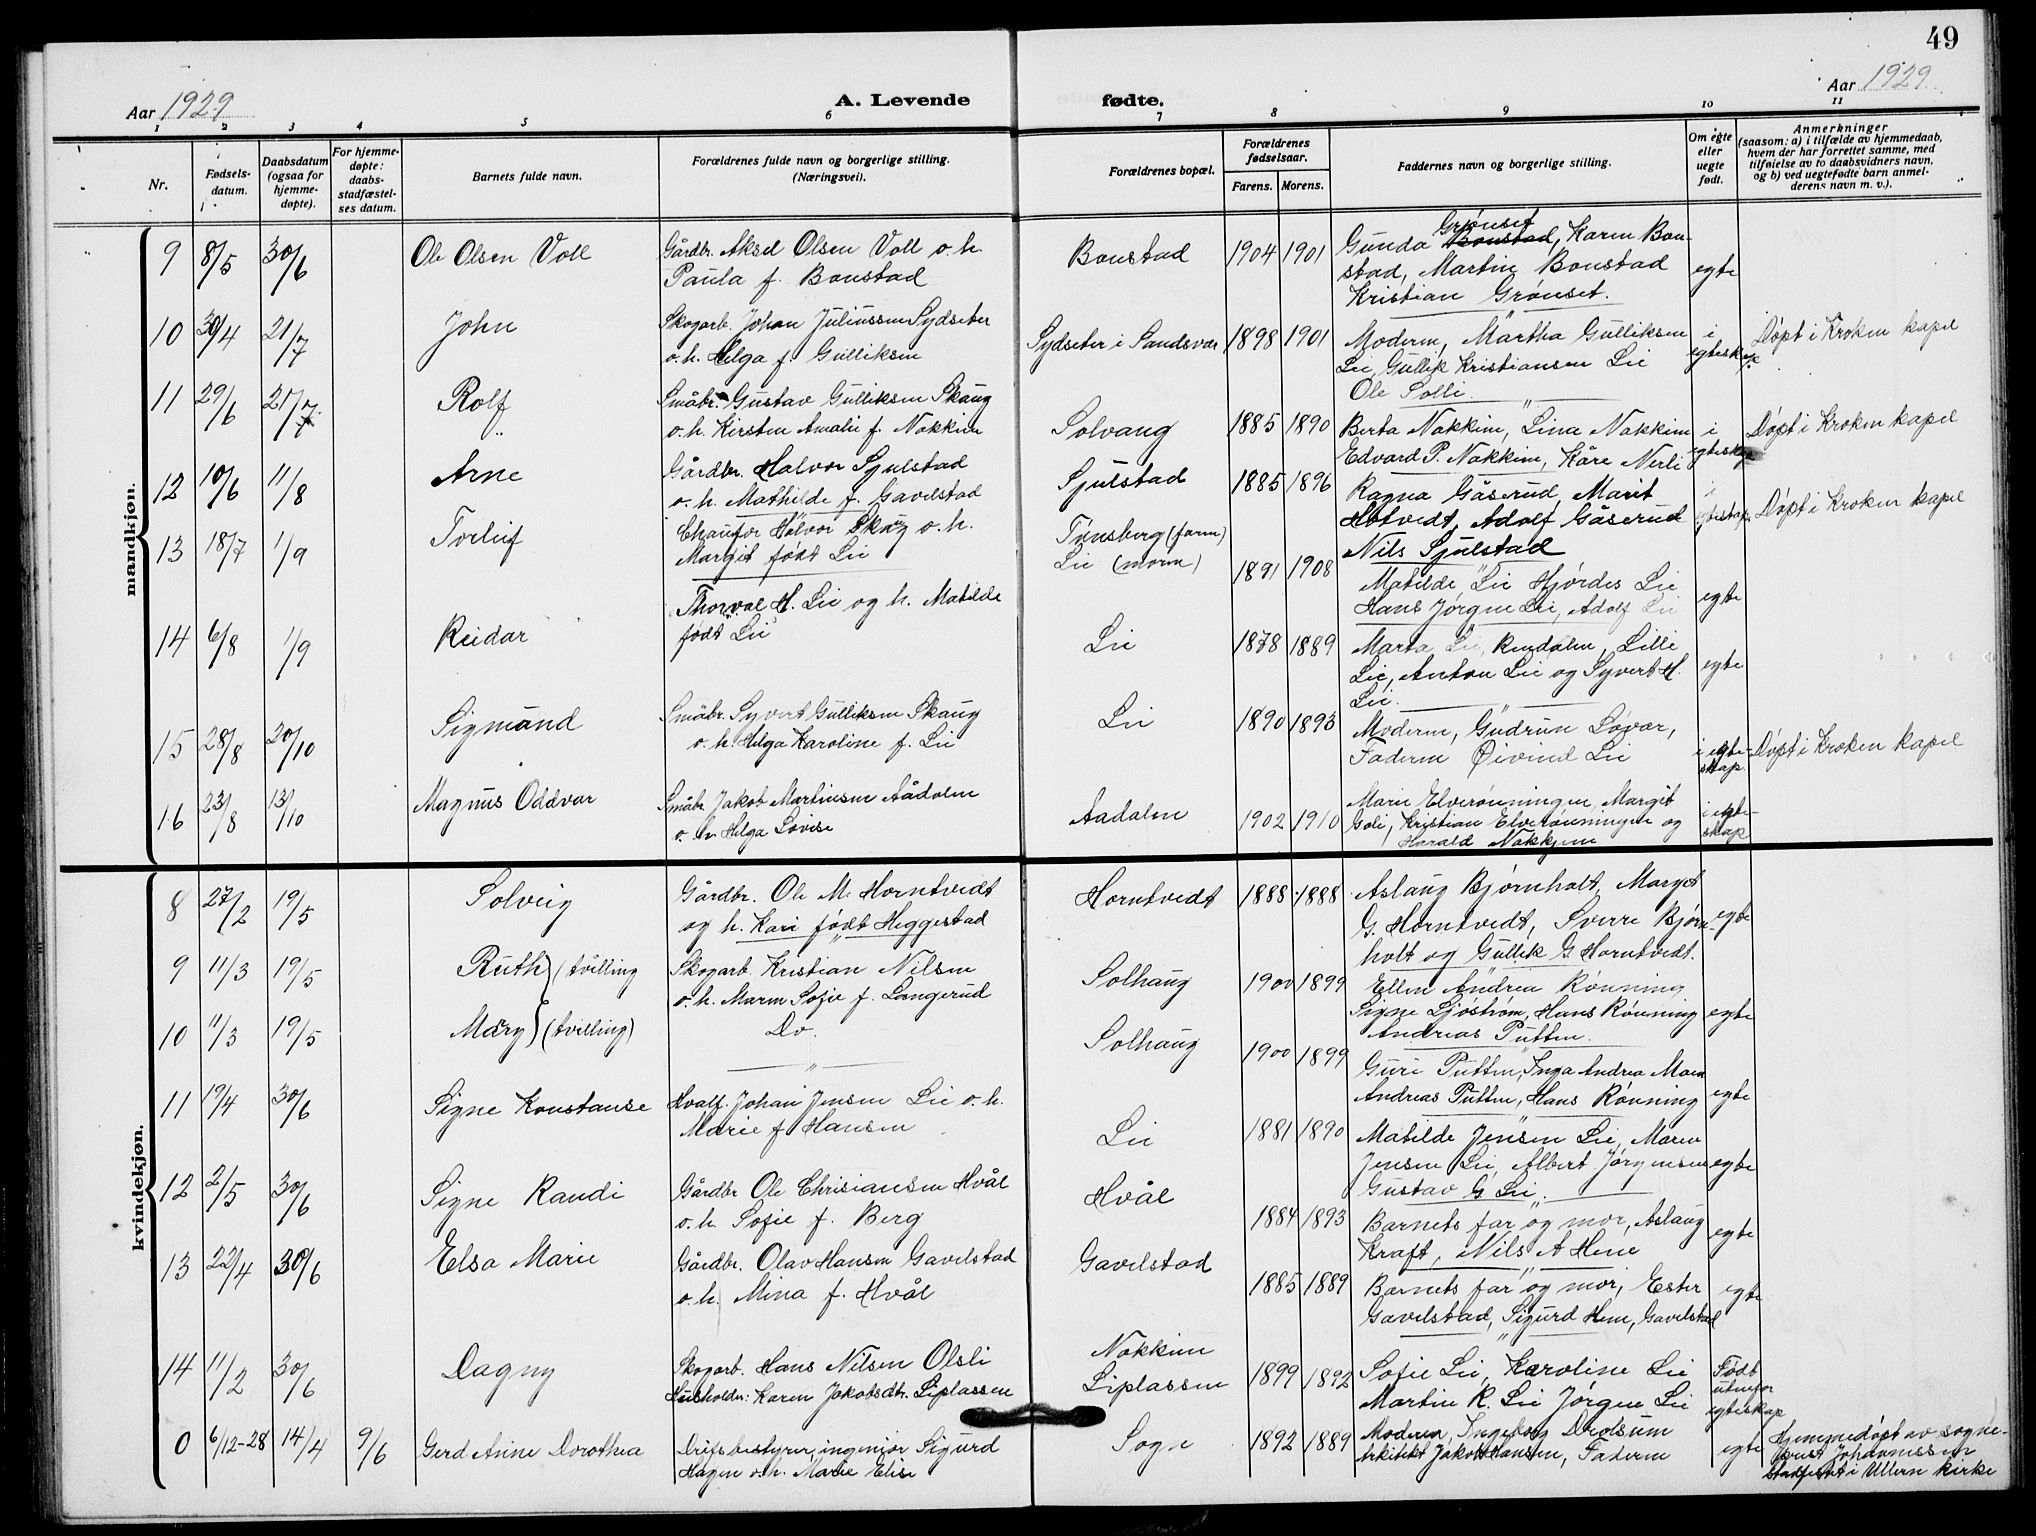 49
Aar 1929
A. Levende fødte.
Aar 1929
1 2 3 4 5 6 7 8 9 10 11
Nr.
Fødsels-
datum.
Daabsdatum
(ogsaa for
hjemme-
døpte).
For hjemme-
døpte:
daabs-
stadfæstel-
ses datum.
Barnets fulde navn.
Forældrenes fulde navn og borgerlige stilling.
(Næringsvei).
Forældrenes bopæl.
Forældrenes
fødselsaar.
Farens. Morens.
Faddernes navn og borgerlige stilling.
Om egte
eller
uegte
født.
Anmerkninger
(saasom: a) i tilfælde av hjemmedaab,
hvem der har forrettet samme, med
tilføielse av to daabsvidners navn,
og b) ved uegtefødte barn anmel-
derens navn m. v.).
mandkjøn.
9 8/5 30/6 Ole Olsen Voll
Gårdbr. Aksel Olsen Voll o. h.
Paula f. Bonstad
Bonstad 1904 1901
Grønset
Gunda Bonstad, Karen Bon-
stad, Martin Bonstad
Kristian Grønset.
egte
10 30/4 21/7 John
Skogarb. Johan Juliussen Sydseter
o. h. Helga f. Gulliksen
Sydseter i Sandsvær 1898 1901
Moderen, Martha Gulliksen
Lie, Gullik Kristiansen Lie
Ole Solli.
i
egteskap.
Døpt i Kroken kapel
11 29/6 21/7 Rolf
Småbr. Gustav Gulliksen Skaug
o. h. Kirsten Amalie f. Nakkim
Solvang 1885 1890
Berta Nakkim, Lina Nakkim
Edvard P. Nakkim, Kåre Nerli
i
egteskap
Døpt i Kroken kapel
12 10/6 11/8 Arne
Gårdbr. Halvor Sjulstad
o. h. Mathilde f. Gavelstad
Sjulstad 1885 1896
Ragna Gåserud, Marit
Hotvedt, Adolf Gåserud
Nils Sjulstad
i
egteskap
Døpt i Kroken kapel
13 18/7 1/9 Torleif
Chaufør Halvor Skaug o. h.
Margit født Lie
Tønsberg (faren)
Lie (moren)
1891 1908
Matilde Lie Hjørdes Lie
Hans Jørgen Lie, Adolf Lie
egte
14 6/8 1/9 Reidar
Thorval H. Lie og h. Matilde
født Lie
Lie 1878 1889
Marta Lie, Rendalen, Lilli
Lie, Anton Lie og Syvert H.
Lie.
egte
15 28/8 20/10 Sigmund
Småbr. Syvert Gulliksen Skaug
o. h. Helga Karoline f. Lie
Lie 1890 1893
Moderen, Gudrun Løvar,
Faderen Øivind Lie
i egte-
skap.
Døpt i Kroken kapel
16 23/8 13/10 Magnus Oddvar
Småbr. Jakob Martinsen Aadalen
o. h. Helga Lovise
Aadalen 1902 1910
Marie Elverønningen, Margit
Goli, Kristian Elverønningen og
Harald Nakkjem
i egte-
skap
kvindekjøn.
8 27/2 19/5 Solveig
Gårdbr. Ole M. Horntvedt
og h. Kari født Heggestad
Horntvedt 1888 1888
Aslaug Bjørnholt, Marget
G. Horntvedt, Sverre Bjørn-
holt og Gullik G. Horntvedt.
egte
9 11/3 19/5 Ruth (tvilling
Skogarb. Kristian Nilsen
o. h. Maren Sofie f. Langerud
Solhaug 1900 1899
Ellen Andrea Rønning
Signe Sjøstrøm, Hans Rønning
Andreas Putten.
egte
10 11/3 19/5 Mary (tvilling)
Do.
Solhaug 1900 1899
Guri Putten, Inga Andrea Moen
Andreas Putten, Hans Rønning
egte
11 19/4 30/6 Signe Konstanse
Hvalf. Johan Jensen Lie o. h.
Marie f. Hansen
Lie 1881 1890
Matilde Jensen Lie, Maren
Jensen Lie, Albert Jørgensen
Gustav G. Lie.
egte
12 2/5 30/6 Signe Randi
Gårdbr Ole Chrisiansen Hvål
o. h. Sofie f. Berg
Hvål 1884 1893
Barnets far og mor, Aslaug
Kraft, Nils A Hene
egte
13 22/4 30/6 Elsa Marie
Gårdbr. Olav Hansen Gavelstad
o. h. Mina f. Hvål
Gavelstad 1885 1889
Barnets far og mor, Ester
Gavelstad, Sigurd Hem, Gavelstad
egte
14 11/2 30/6 Dagny
Skogarb. Hans Nilsen Olsli
Husholder: Karen Jakobsdtr. Liplassen
Nakkim
Liplassen
1899 1892
Sofie Lie, Karoline Lie
Martin K. Lie Jørgen Lie
Født
utenfor
egteskap
0 6/12-28 14/4 9/6 Gerd Anine Dorothea
Driftsbestyrer, ingeniør Sigurd
Hagen o. h. Marie Elise
Sogn 1892 1889
Moderen, Ingeborg Drolsum
Arkitekt Jakob Hansen, Faderen
egte
Hjemmedøpt av sogne-
prest Johannessen
stadfestet i Ullern kirke